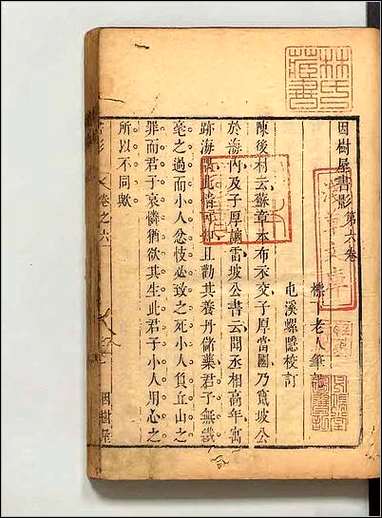 因樹屋書影第六卷
櫟下老人筆
屯溪螺隱校訂
陳後村云蘇章本布衣交子厚當國乃竄坡公
於海內及子厚謫雷坡公書云聞丞相高年寓
跡海隅此情可知且勸其養丹儲藥君子無纖
毫之過而小人忿忮必致之死小人負丘山之
罪而君子哀憐猶欲其生此君子小人用心之
所以不同歟
書影
卷之六
因樹屋
林氏
藏書